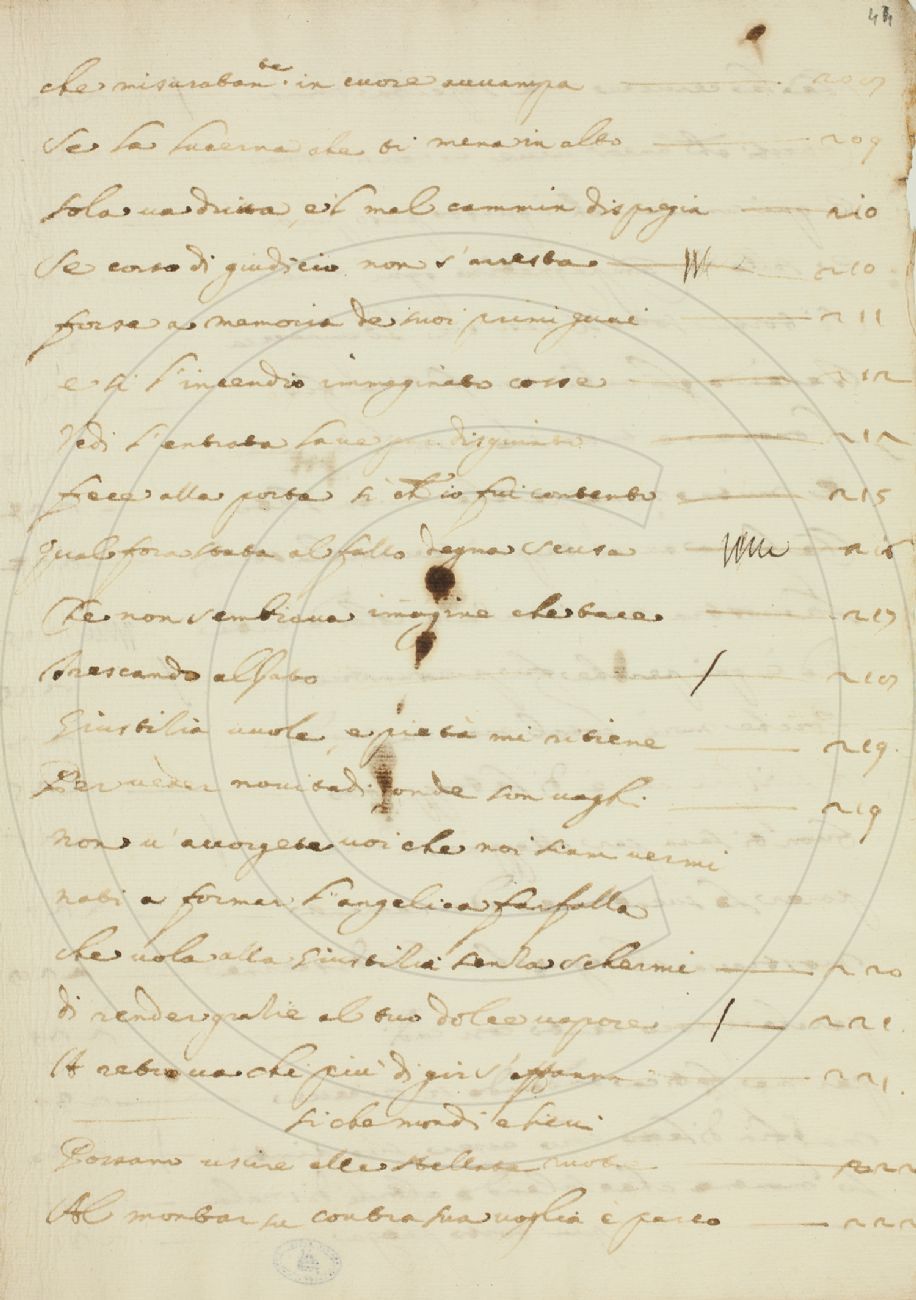 44
che misurabam.te in cuore auuampa 208
Se la lucerna che ti mena in alto 209
sola ua dritta, e 'l mal cammin dispregia 210
Se corso di giudicio non s'arresta 210
forse a memoria de suoi primi guai 211
e si l'incendio immaginato cosse 212
Vedi l'entrata la ue par disgiunto 212
fece alla porta si ch'io fui contento 215
qual fora stata al fallo degna scusa 216
Che non sembiaua imagine che tace 217
trescando alzato 218
Giustilia uuole, e pietà mi ritiene 219.
Per ueder nouitadi onde son uaghi 219
non u'accorgete uoi che noi siam uermi
nati a formar l'angelica farfalla
che uola alla Giustilia senza schermi 220
di render gratie al tuo dolce uapore 221.
A retro ua chi più di gir s'affanna 221.
si che mondi e lieui
Possano uscire alle stellate ruote 222
Al montar su contra sua uoglia è parco 222